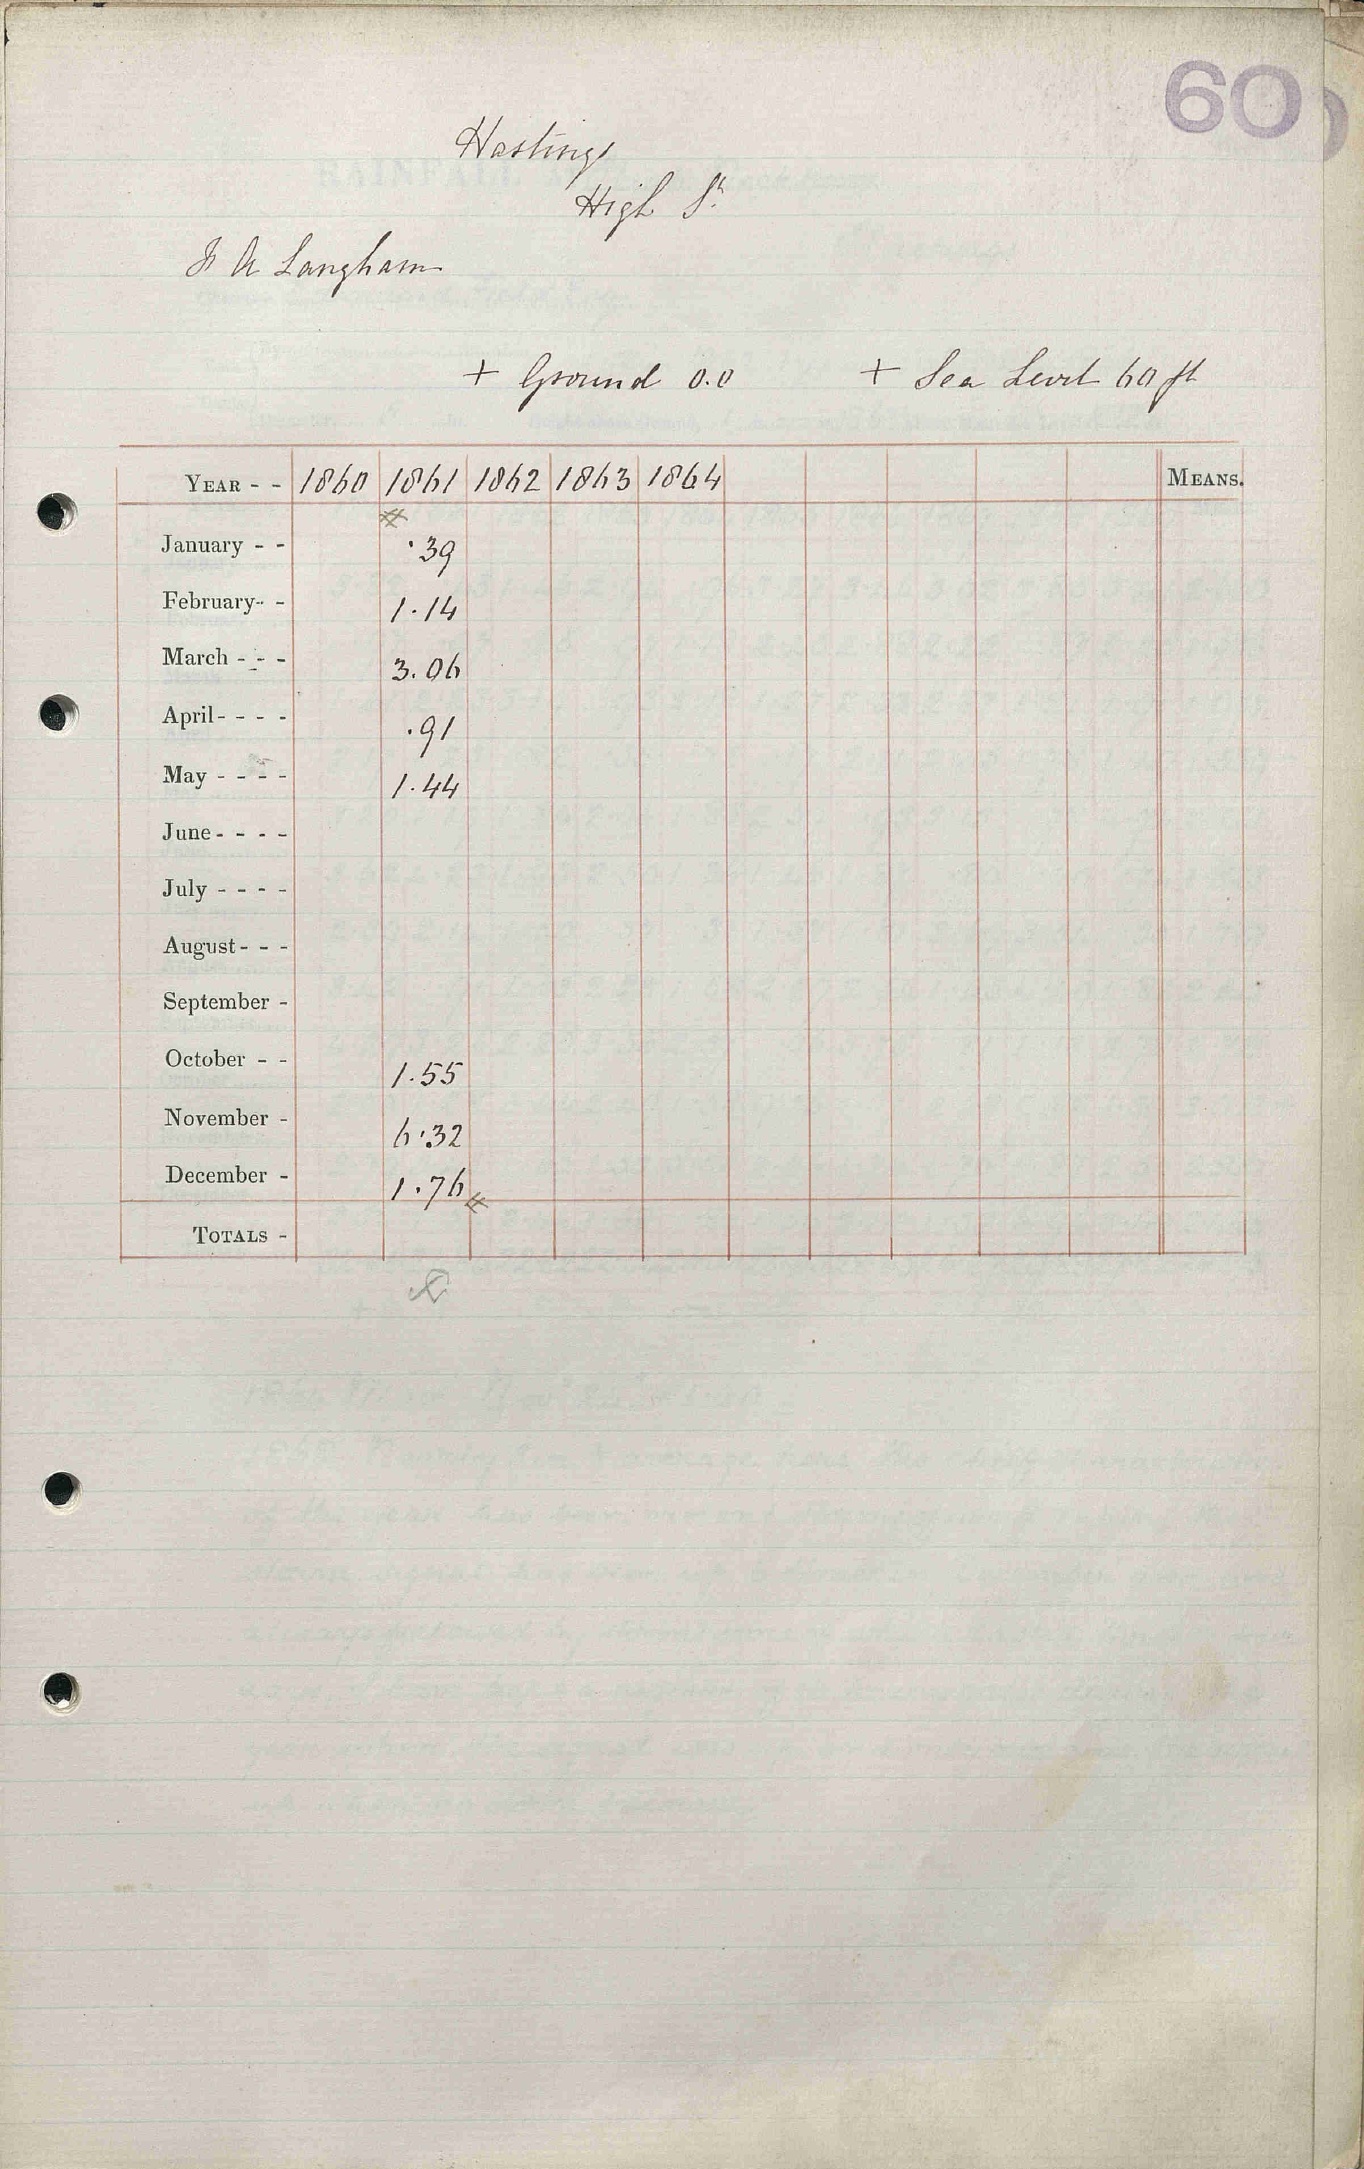 60
Hastings
High St
J A Langham
+ Ground 0.0 + Sea Level 60 ft
YEAR - - 1860 1861 1862 1863 1864 MEANS.
January - - .39
February - - 1.14
March - - - 3.06
April - - - - .91
May - - - - 1.44
June - - - -
July - - - -
August - - -
September -
October - - 1.55
November - 6.32
December - 1.76
TOTALS -